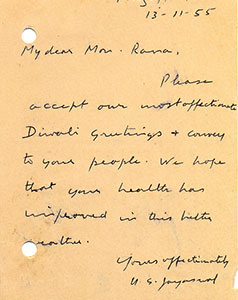 13-11-55
My dear Mon. Rana,
Please
accept our most affectionate
Diwali Greetings & convey
to your people. We hope
that your health has
improved in this better
weather.
Yours affectionately
U. S.